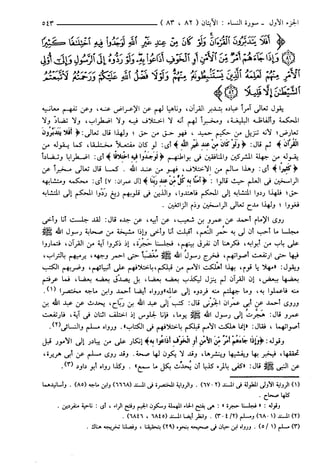 الجزء الأول - سورة النساء : الآيتان ( ٨٢ ، ٨٣ ) ٥٤٣
﴿ أَفَلَا يَتَدَبَّرُونَ الْقُرْآنَ وَلَوْ كَانَ مِنْ عِندِ غَيْرِ اللَّهِ لَوَجَدُوا فِيهِ اخْتِلَافًا كَثِيرًا
وَإِذَا جَاءَهُمْ أَمْرٌ مِّنَ الْأَمْنِ أَوِ الْخَوْفِ أَذَاعُوا بِهِ وَلَوْ رَدُّوهُ إِلَى الرَّسُولِ وَإِلَىٰ أُولِي
الْأَمْرِ مِنْهُمْ لَعَلِمَهُ الَّذِينَ يَسْتَنبِطُونَهُ مِنْهُمْ وَلَوْلَا فَضْلُ اللَّهِ عَلَيْكُمْ وَرَحْمَتُهُ لَاتَّبَعْتُمُ
الشَّيْطَانَ إِلَّا قَلِيلًا ﴾
يقول تعالى آمراً عباده بتدبر القرآن، وناهياً لهم عن الإعراض عنه، وعن تفهم معانيه
المحكمة وألفاظه البليغة، ومخبراً لهم أنه لا اختلاف فيه ولا اضطراب، ولا تضاد ولا
تعارض؛ لأنه تنزيل من حكيم حميد ، فهو حق من حق ؛ ولهذا قال تعالى: ﴿أفلا يتدبرون
القرآن﴾ ثم قال: ﴿ولو كان من عند غير الله﴾ أي: لو كان مفتعلاً مختلقاً، كما يقوله من
يقوله من جهلة المشركين والمنافقين في بواطنهم ﴿لوجدوا فيه اختلافاً﴾ أي: اضطراباً وتضاداً
﴿كثيراً﴾ أي: وهذا سالم من الاختلاف، فهو من عند الله . كما قال تعالى مخبراً عن
الراسخين في العلم حيث قالوا: ﴿آمنا به كل من عند ربنا﴾ [آل عمران: ٧] أي: محكمه ومتشابهه
حق؛ فلهذا ردوا المتشابه إلى المحكم فاهتدوا، والذين في قلوبهم زيغ ردّوا المحكم إلى المتشابه
فغووا ؛ ولهذا مدح تعالى الراسخين وذم الزائغين .
روى الإمام أحمد عن عمرو بن شعيب، عن أبيه، عن جده قال: لقد جلست أنا وأخي
مجلساً ما أحب أن لي به حمر النعم، أقبلت أنا وأخي وإذا مشيخة من صحابة رسول الله ﷺ
على باب من أبوابه، فكرهنا أن نفرق بينهم، فجلسنا حجرة، إذ ذكروا آية من القرآن، فتماروا
فيها حتى ارتفعت أصواتهم، فخرج رسول الله ﷺ مغضباً حتى احمر وجهه، يرميهم بالتراب،
ويقول: «مهلاً يا قوم، بهذا أهلكت الأمم من قبلكم، باختلافهم على أنبيائهم، وضربهم الكتب
بعضها ببعض، إن القرآن لم ينزل ليكذب بعضه بعضاً، بل يصدق بعضه بعضاً، فما عرفتم
منه فاعملوا به، وما جهلتم منه فردوه إلى عالمه» ورواه أيضاً أحمد وابن ماجه مختصراً (١).
وروى أحمد عن أبي عمران الجوني قال: كتب إلي عبد الله بن رباح، يحدث عن عبد الله بن
عمرو قال: هجّرت إلى رسول الله ﷺ يوماً، فإنا لجلوس إذ اختلف اثنان في آية، فارتفعت
أصواتهما ، فقال: «إنما هلكت الأمم قبلكم باختلافهم في الكتاب». ورواه مسلم والنسائي (٢).
وقوله: ﴿وإذا جاءهم أمر من الأمن أو الخوف أذاعوا به﴾ إنكار على من يبادر إلى الأمور قبل
تحققها، فيخبر بها ويفشيها وينشرها، وقد لا يكون لها صحة. وقد روى مسلم عن أبي هريرة،
عن النبي ﷺ قال: «كفى بالمرء كذباً أن يُحدِّث بكل ما سمع» . وكذا رواه أبو داود (٣).
(١) الرواية الأولى المطولة في المسند (٦٧٠٢) . والرواية المختصرة في المسند (٦٦٦٨) وابن ماجه (٨٥) . وأسانيدهما
كلها صحاح .
وقوله : « فجلسنا حجرة » : هي بفتح الحاء المهملة وسكون الجيم وفتح الراء ، أي : ناحية منفردين .
(٢) المسند (٦٨٠١) ومسلم (٢/ ٣٠٤) . وانظر أيضاً المسند (٦٨٤٥ ، ٦٨٤٦) .
(٣) مسلم (١/ ٥) . ورواه ابن حبان في صحيحه بنحوه (٢٩) بتحقيقنا ، وفصلنا تخريجه هناك .